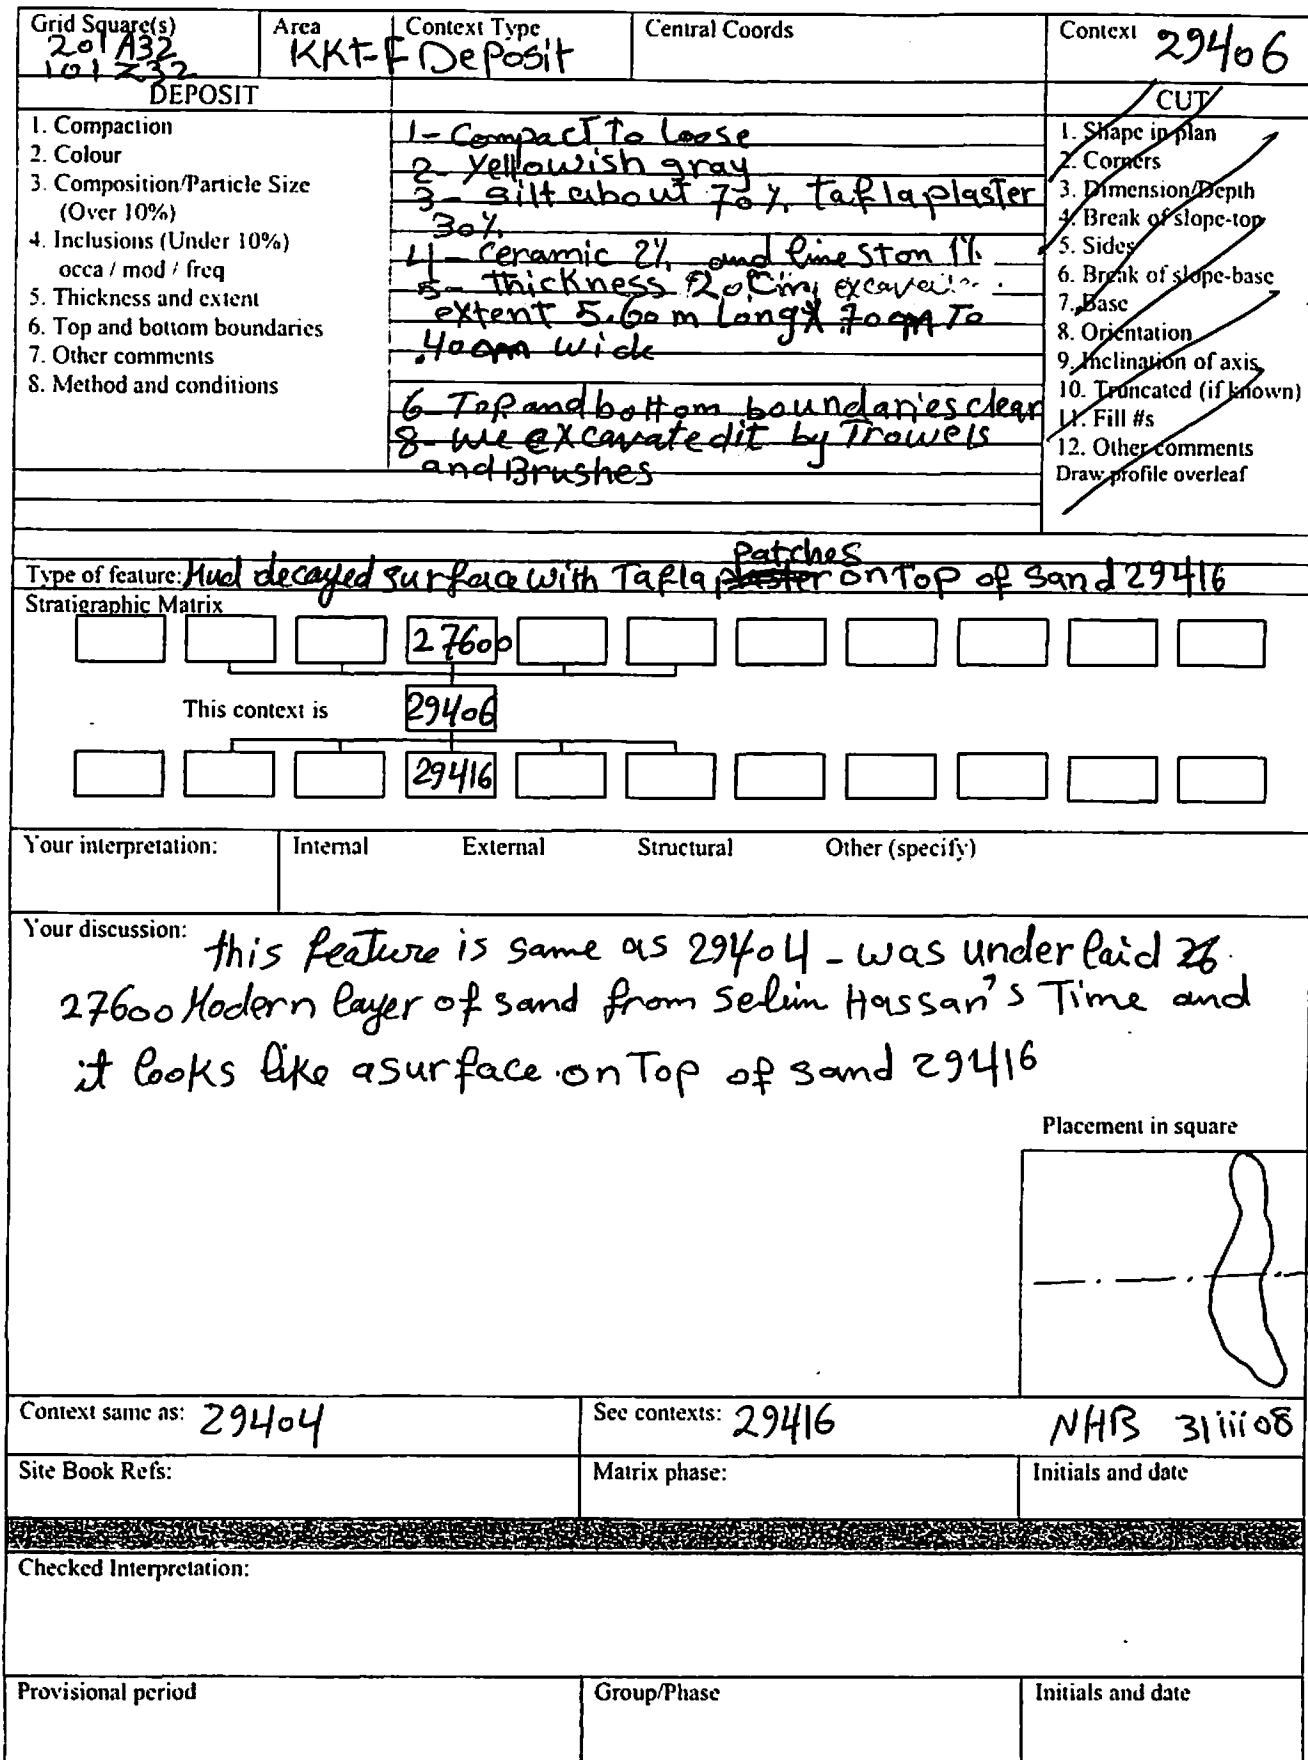 Grid Square(s) Area Context Type Central Coords Context 29406
201 A32 KKT-F Deposit
101 Z32
DEPOSIT CUT
1. Compaction
2. Colour
3. Composition/Particle Size
(Over 10%)
4. Inclusions (Under 10%)
occa / mod / freq
5. Thickness and extent
6. Top and bottom boundaries
7. Other comments
8. Method and conditions
1- Compact To Loose
2- Yellowish gray
3- silt about 70% tafla plaster
30%
4- Ceramic 2% and limeston 1%
5- thickness 20cm,
extent 5.60m Long X .70cm To
.40cm wide
6 Top and bottom boundaries clear
8- we excavated it by Trowels
and Brushes
1. Shape in plan
2. Corners
3. Dimension/Depth
4. Break of slope-top
5. Sides
6. Break of slope-base
7. Base
8. Orientation
9. Inclination of axis
10. Truncated (if known)
11. Fill #s
12. Other comments
Draw profile overleaf
patches
Type of feature: Mud decayed surface with Tafla plaster on Top of sand 29416
Stratigraphic Matrix
27600
This context is 29406
29416
Your interpretation: Internal External Structural Other (specify)
Your discussion: this feature is same as 29404 - was under laid 26
27600 Modern layer of sand from Selim Hassan's Time and
it looks like a surface on Top of sand 29416
Placement in square
Context same as: 29404 See contexts: 29416 NHB 31 iii 08
Site Book Refs: Matrix phase: Initials and date
Checked Interpretation:
Provisional period Group/Phase Initials and date